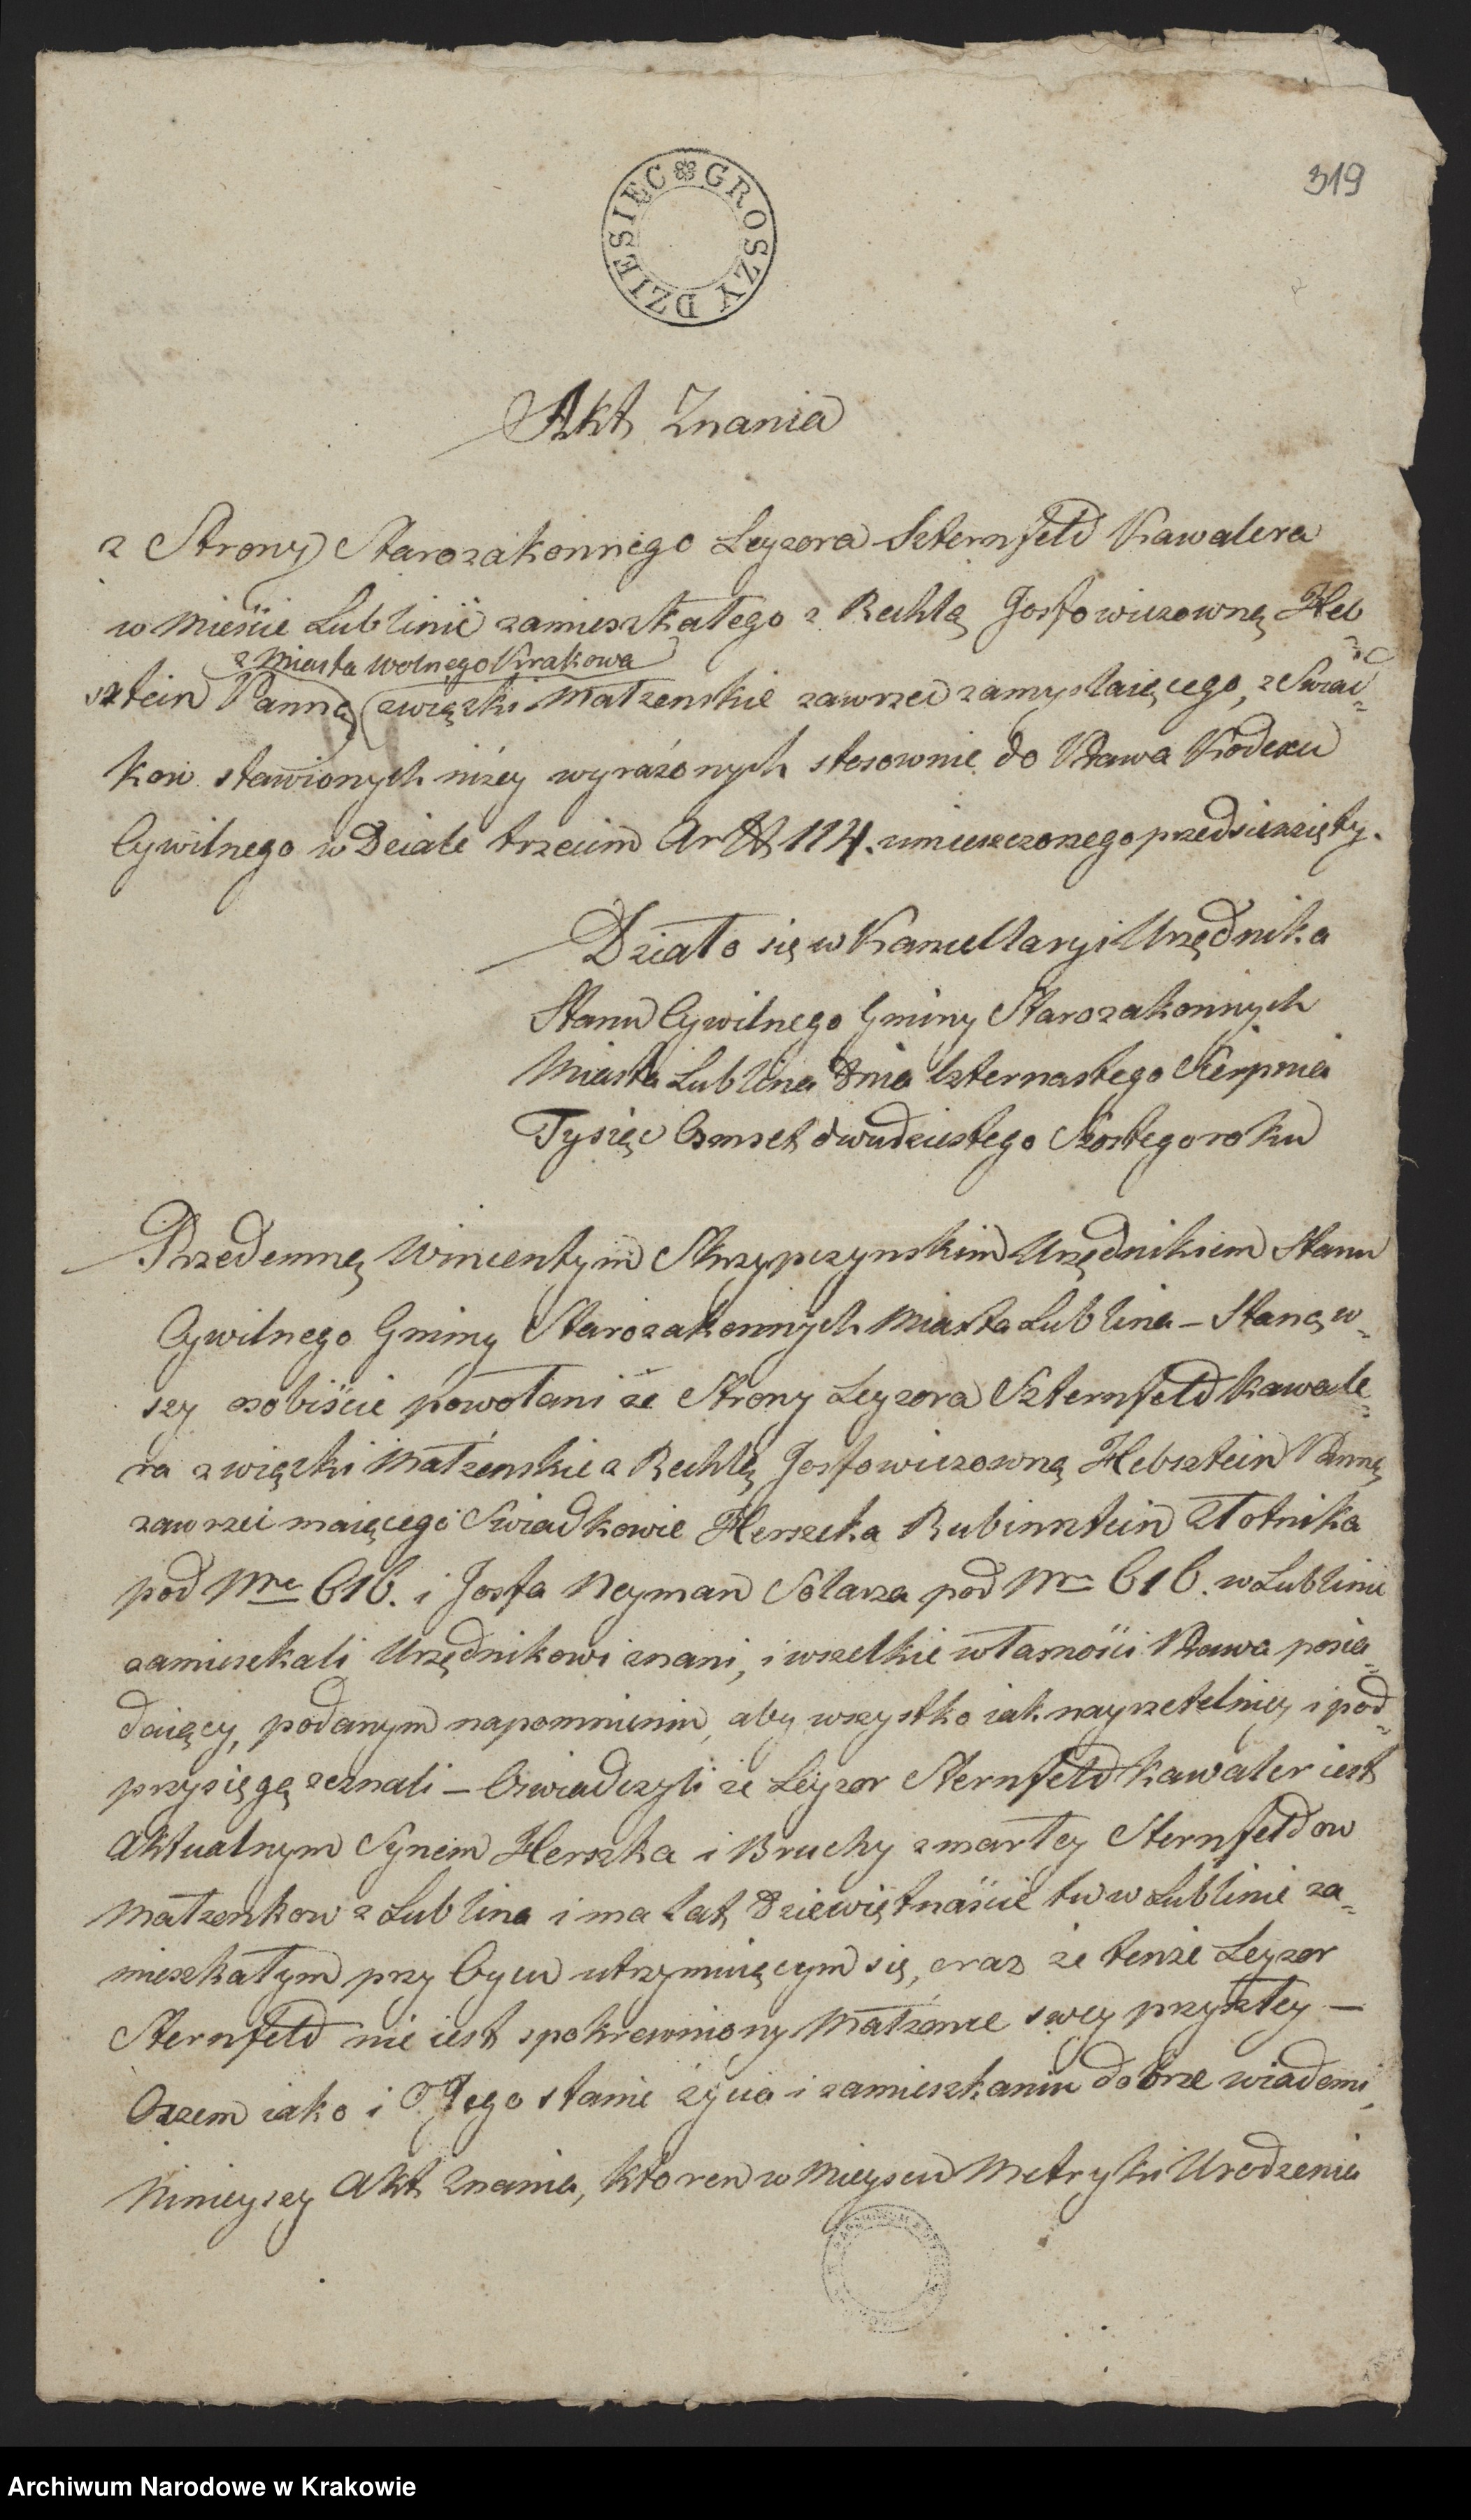 319
GROSZY DZIESIĘC
Akt Znania
z Strony Starozakonnego Leyzora Szternfeld Kawalera
w Mieście Lublinie zamieszkałego z Ruchlą Josfowiczowną Heb
z Miasta Wolnego Krakowa
sztein Panną związki Małżenskie zawrzeć zamyslaiącego, z Swiad=
kow stawionych niżey wyrażonych stosownie do Prawa Kodexu
Cywilnego w Dziale trzecim Art 114. umieszczonego przedsięwzięty.
Działo się w Kancellaryi Urzędnika
Stanu Cywilnego Gminy Starozakonnych
Miasta Lublina dnia Czternastego Sierpnia
Tysiąc Osmset dwudziestego Szostego roku
Przedemną Wincentym Skrzypczynskim Urzędnikiem Stanu
Cywilnego Gminy Starozakonnych Miasta Lublina – Stanąw=
szy osobiście powołani ze Strony Leyzora Szternfeld Kawale=
ra związki Małżenskie z Ruchlą Josfowiczowną Hebsztein Panną
zawrzeć maiącego Swiadkowie Herszka Rubinsztein Złotnika
pod Nre 616. i Josfa Neyman Solarza pod Nre 616. w Lublinie
zamieszkali Urzędnikowi znani, i wszelkie własności Prawa posia=
daiący, podanym napomnieniu, aby wszystko iak nayrzetelniey i pod=
przysięgą zeznali – Oswiadczyli że Leyzor Sternfeld Kawaler iest
Aktualnym Synem Herszka i Bruchy zmarłey Sternfeldow
Małżonkow z Lublina i ma lat dziewiętnaście tu w Lublinie za=
mieszkałym przy Oycu utrzymuiącym się, oraz że tenże Leyzor
Sternfeld nie iest spokrewniony Małżonce swey przyszłey –
Oczem iako i O Jego stanie życia i zamieszkaniu dobrze wiadomi,
Ninieyszy Akt Znania, ktoren w Mieyscu Metryki Urodzenia
Archiwum Narodowe w Krakowie